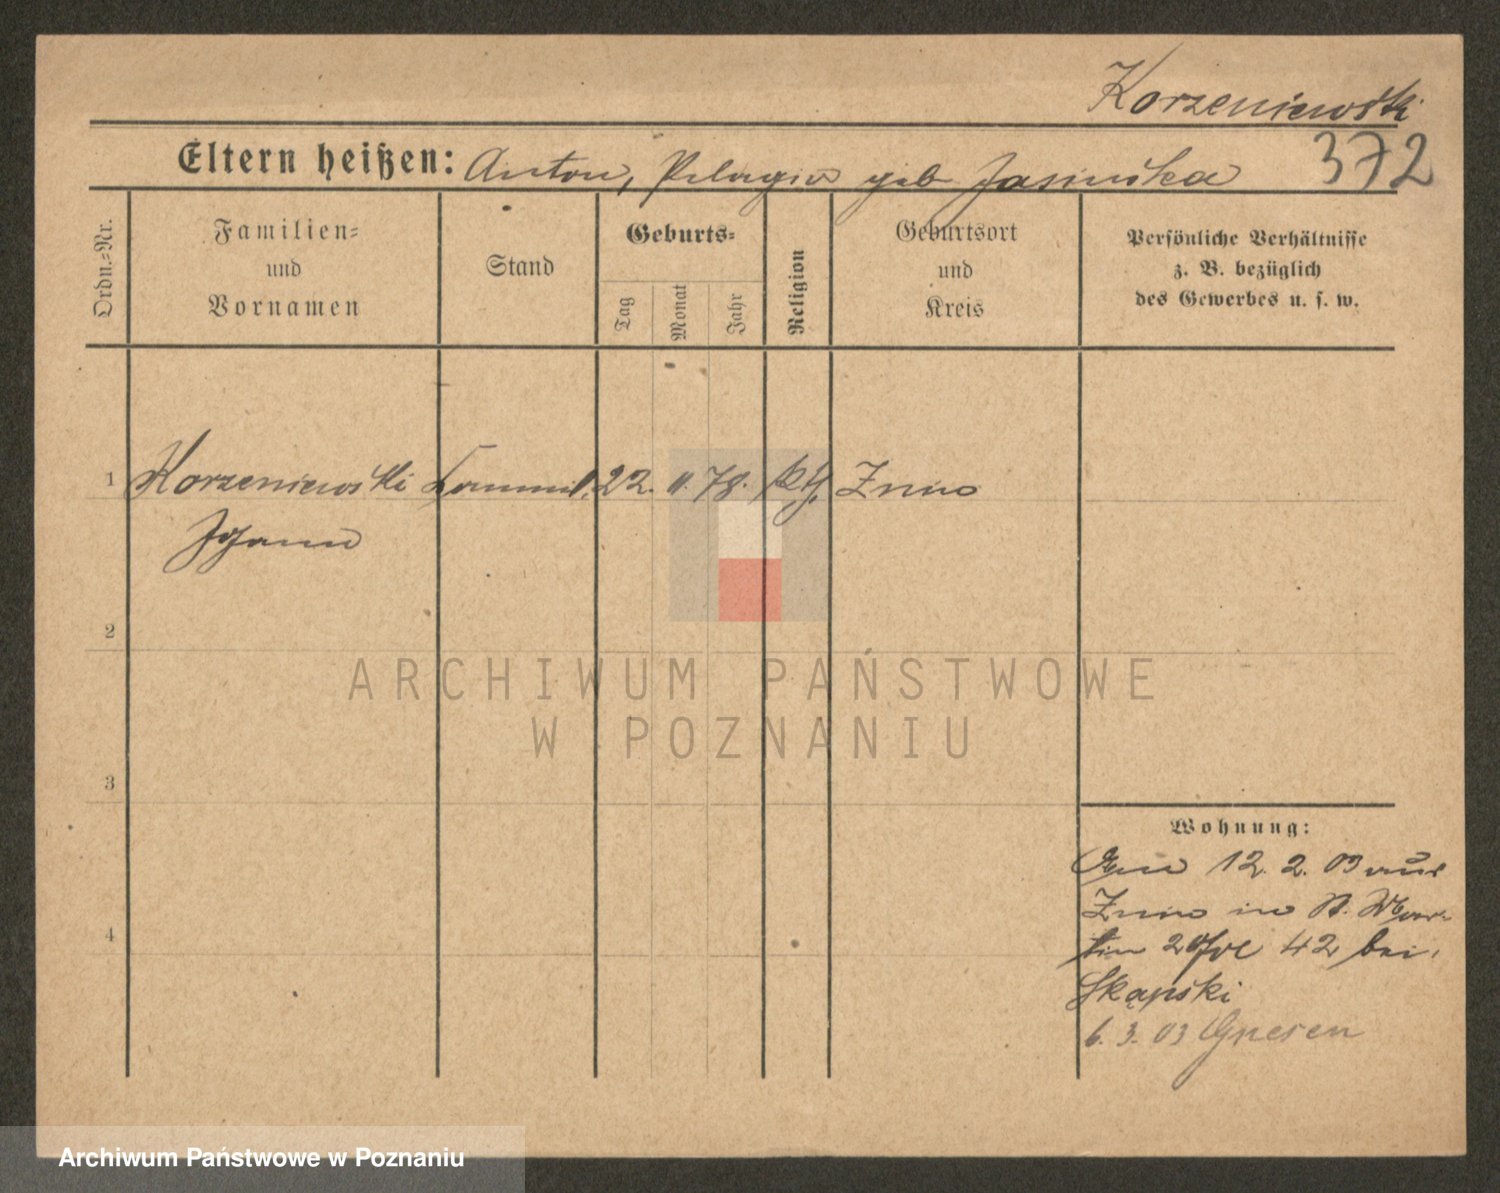 Korzeniewski
372
Eltern heißen: Anton, Pelagia geb Jasinska
Ordn.-Nr.
Familien-
und
Vornamen
Stand
Geburts-
Tag
Monat
Jahr
Religion
Geburtsort
und
Kreis
Persönliche Verhältnisse
z. B. bezüglich
des Gewerbes u. s. w.
1 Korzeniewski 22. 11. 78. kth. Znin
Johann
2
ARCHIWUM PAŃSTWOWE
W POZNANIU
3
4
Wohnung:
12. 2. 03 aus
Znin in St. Mar-
tin 42 bei
Skąpski
6. 3. 03 Gnesen
Archiwum Państwowe w Poznaniu